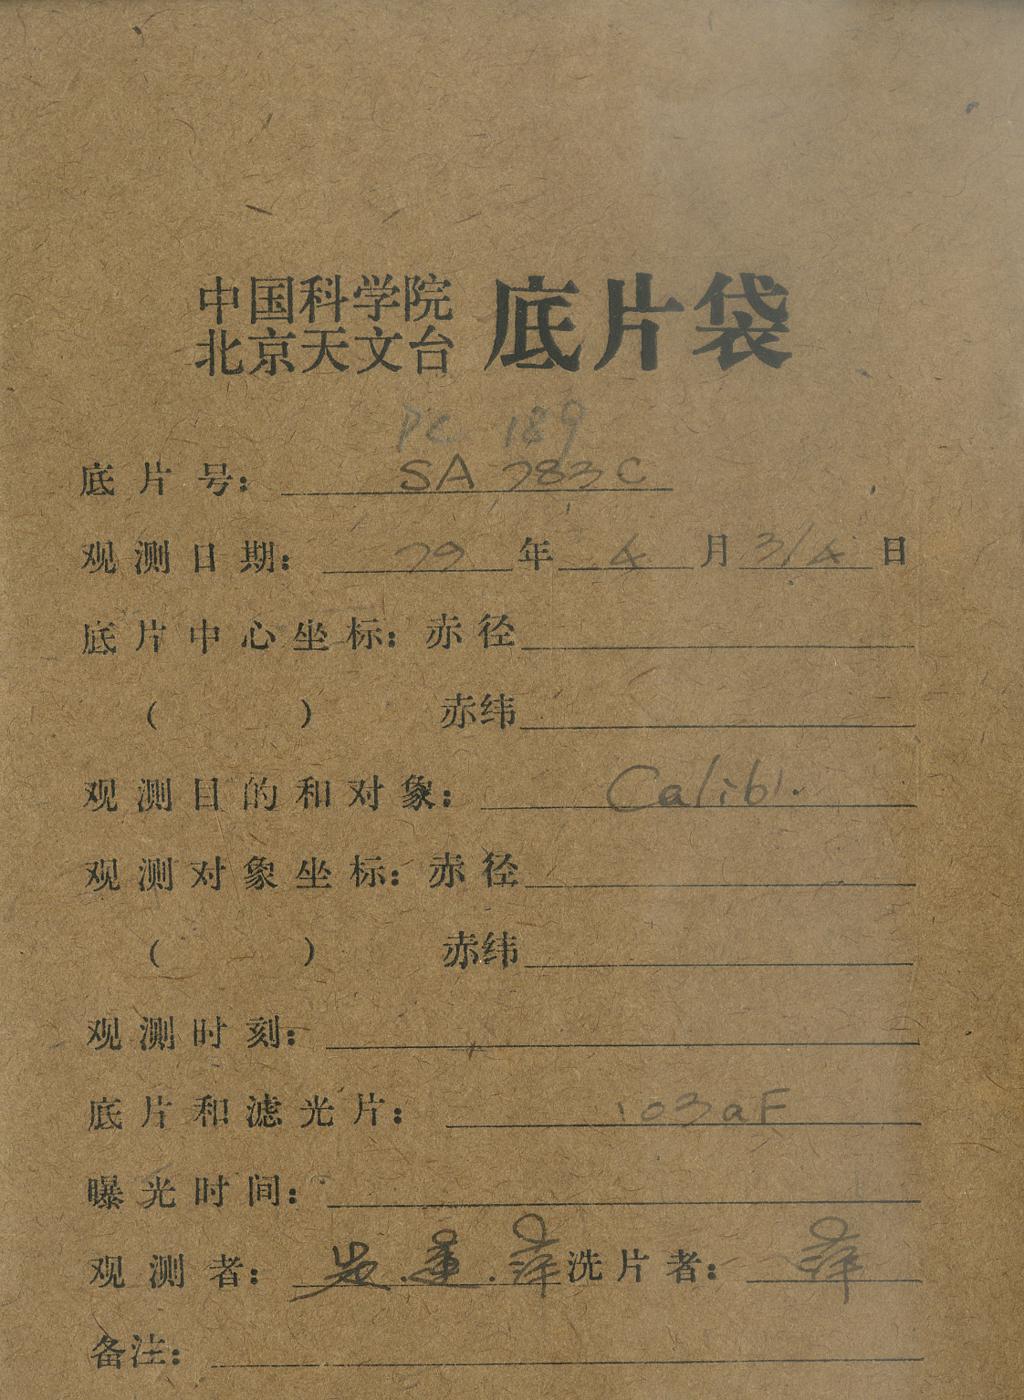 中国科学院
北京天文台 底片袋
PC 189
底片号: SA 783C
观测日期: 79 年 4 月 3/4 日
底片中心坐标: 赤径
( ) 赤纬
观测目的和对象: Calibl.
观测对象坐标: 赤径
( ) 赤纬
观测时刻:
底片和滤光片: 103aF
曝光时间:
观测者: 洗片者:
备注: